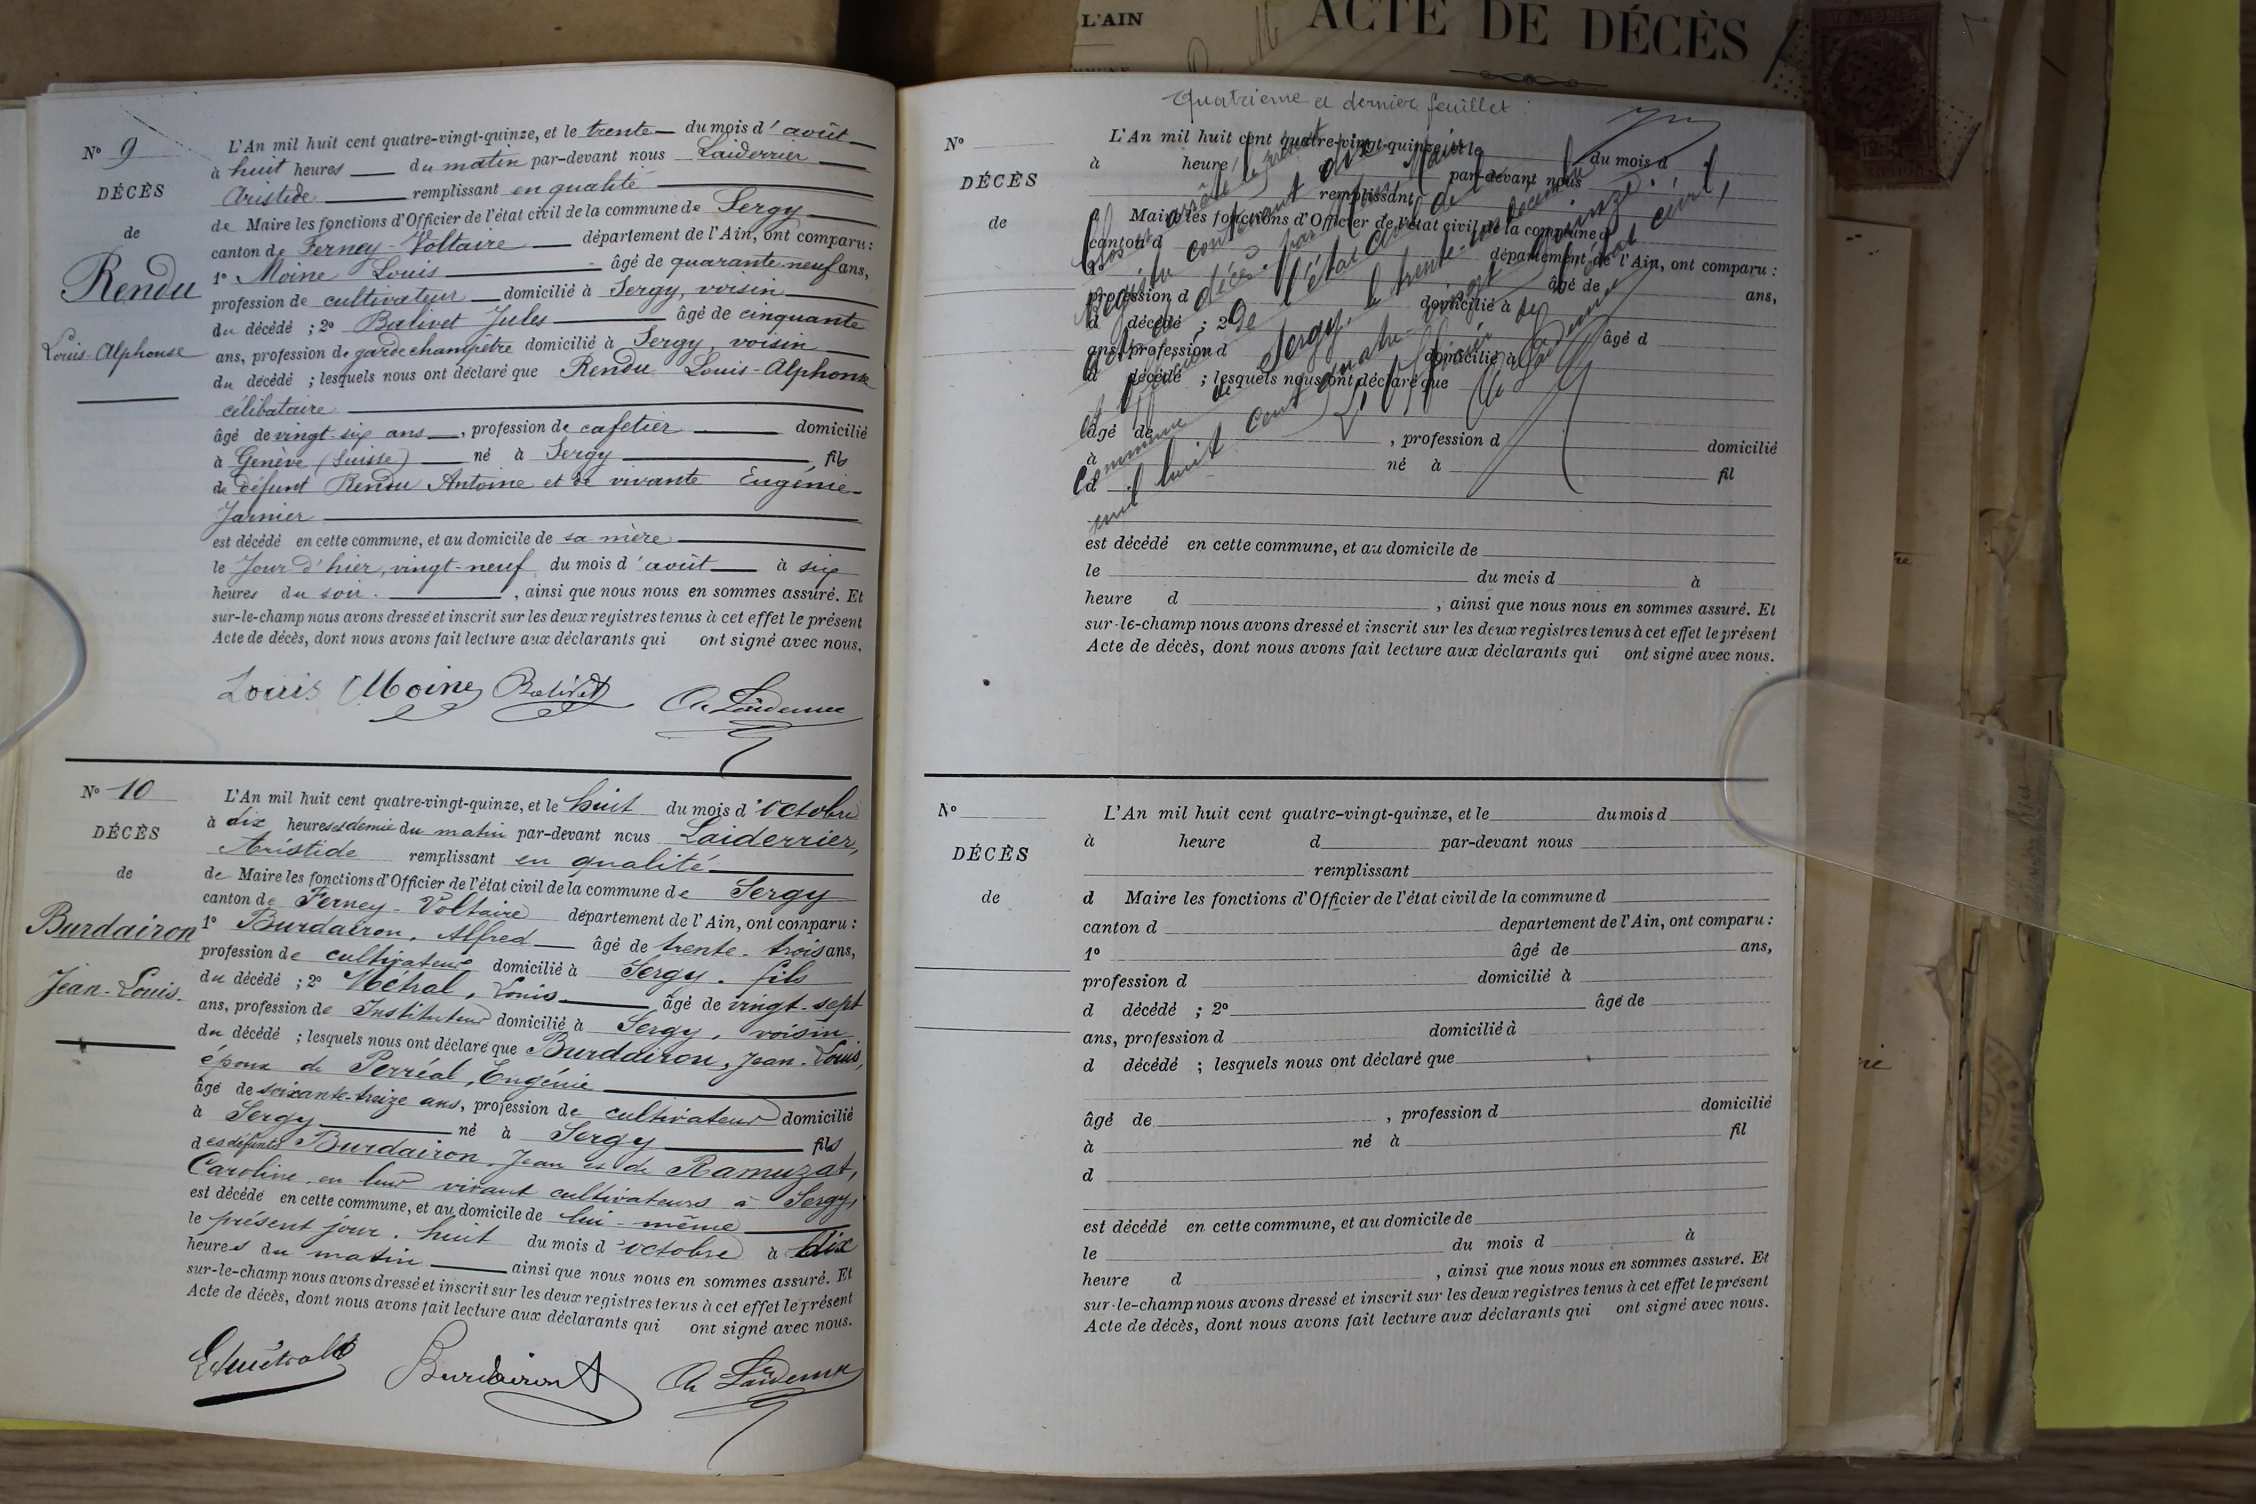 L'AIN
ACTE DE DÉCÈS
N° 9
DÉCÈS
de
Rendu
Louis-Alphonse
L'An mil huit cent quatre-vingt-quinze, et le trente du mois d'août
à huit heures du matin par-devant nous Laiderrier
Aristide remplissant en qualité
de Maire les fonctions d'Officier de l'état civil de la commune de Sergy
canton de Ferney-Voltaire département de l'Ain, ont comparu :
1° Moine Louis âgé de quarante-neuf ans,
profession de cultivateur domicilié à Sergy, voisin
du décédé ; 2° Balivet Jules âgé de cinquante
ans, profession de garde champêtre domicilié à Sergy, voisin
du décédé ; lesquels nous ont déclaré que Rendu Louis-Alphonse
célibataire
âgé de vingt-six ans, profession de cafetier domicilié
à Genève (Suisse) né à Sergy fils
de défunt Rendu Antoine et de vivante Eugénie
Jarnier
est décédé en cette commune, et au domicile de sa mère
le Jour d'hier, vingt-neuf du mois d'août à six
heures du soir. , ainsi que nous nous en sommes assuré. Et
sur-le-champ nous avons dressé et inscrit sur les deux registres tenus à cet effet le présent
Acte de décès, dont nous avons fait lecture aux déclarants qui ont signé avec nous.
Louis Moine Balivet
N° 10
DÉCÈS
de
Burdairon
Jean-Louis.
L'An mil huit cent quatre-vingt-quinze, et le huit du mois d'octobre
à dix heures et demie du matin par-devant nous Laiderrier,
Aristide remplissant en qualité
de Maire les fonctions d'Officier de l'état civil de la commune de Sergy
canton de Ferney-Voltaire département de l'Ain, ont comparu :
1° Burdairon, Alfred âgé de trente-trois ans,
profession de cultivateur domicilié à Sergy. fils
du décédé ; 2° Métral, Louis âgé de vingt-sept
ans, profession de Instituteur domicilié à Sergy, voisin
du décédé ; lesquels nous ont déclaré que Burdairon, Jean-Louis,
époux de Perréal, Eugénie
âgé de soixante-treize ans, profession de cultivateur domicilié
à Sergy né à Sergy fils
des défunts Burdairon, Jean et de Ramuzat,
Caroline, en leur vivant cultivateurs à Sergy,
est décédé en cette commune, et au domicile de lui-même
le présent jour, huit du mois d'octobre à dix
heures du matin ainsi que nous nous en sommes assuré. Et
sur-le-champ nous avons dressé et inscrit sur les deux registres tenus à cet effet le présent
Acte de décès, dont nous avons fait lecture aux déclarants qui ont signé avec nous.
Métral Burdairon A
Quatrième et dernier feuillet
N°
DÉCÈS
de
L'An mil huit cent quatre-vingt-quinze, et le du mois d
à heure par-devant nous
remplissant
d Maire les fonctions d'Officier de l'état civil de la commune d
canton d département de l'Ain, ont comparu :
1° âgé de ans,
profession d domicilié à
d décédé ; 2° âgé d
ans, profession d domicilié à
d décédé ; lesquels nous ont déclaré que
âgé de , profession d domicilié
à né à fil
d
est décédé en cette commune, et au domicile de
le du mois d à
heure d , ainsi que nous nous en sommes assuré. Et
sur-le-champ nous avons dressé et inscrit sur les deux registres tenus à cet effet le présent
Acte de décès, dont nous avons fait lecture aux déclarants qui ont signé avec nous.
N°
DÉCÈS
de
L'An mil huit cent quatre-vingt-quinze, et le du mois d
à heure d par-devant nous
remplissant
d Maire les fonctions d'Officier de l'état civil de la commune d
canton d département de l'Ain, ont comparu :
1° âgé de ans,
profession d domicilié à
d décédé ; 2° âgé de
ans, profession d domicilié à
d décédé ; lesquels nous ont déclaré que
âgé de , profession d domicilié
à né à fil
d
est décédé en cette commune, et au domicile de
le du mois d à
heure d , ainsi que nous nous en sommes assuré. Et
sur-le-champ nous avons dressé et inscrit sur les deux registres tenus à cet effet le présent
Acte de décès, dont nous avons fait lecture aux déclarants qui ont signé avec nous.